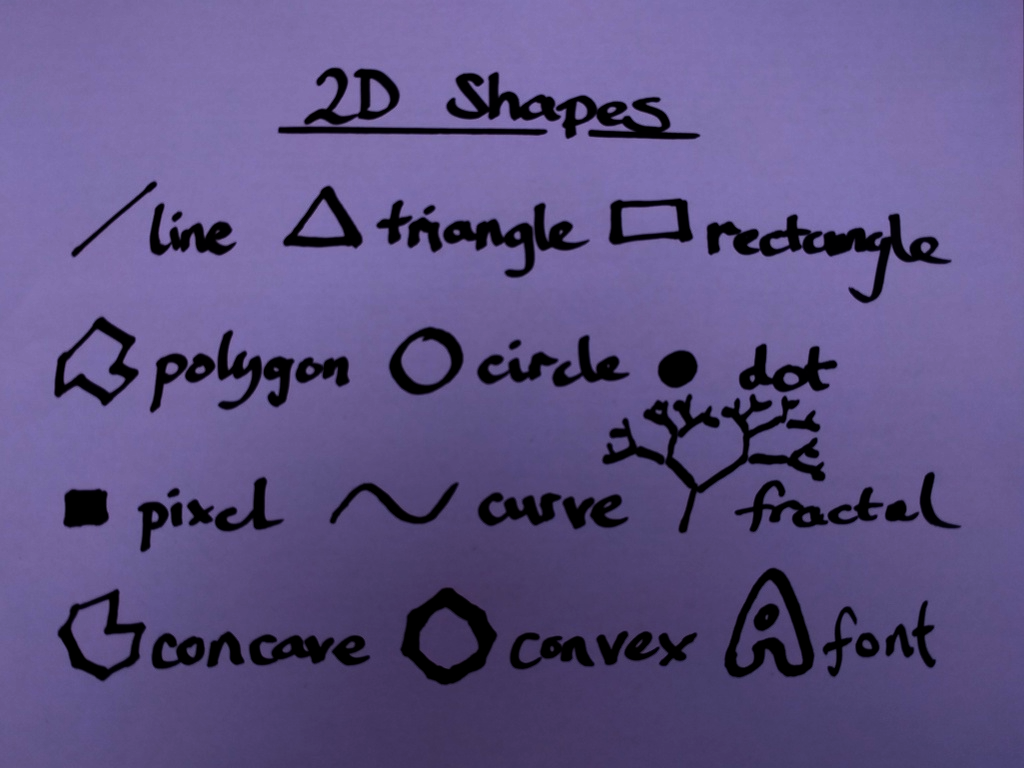 2D Shapes
line triangle rectangle
polygon circle dot
pixel curve fractal
concave convex font